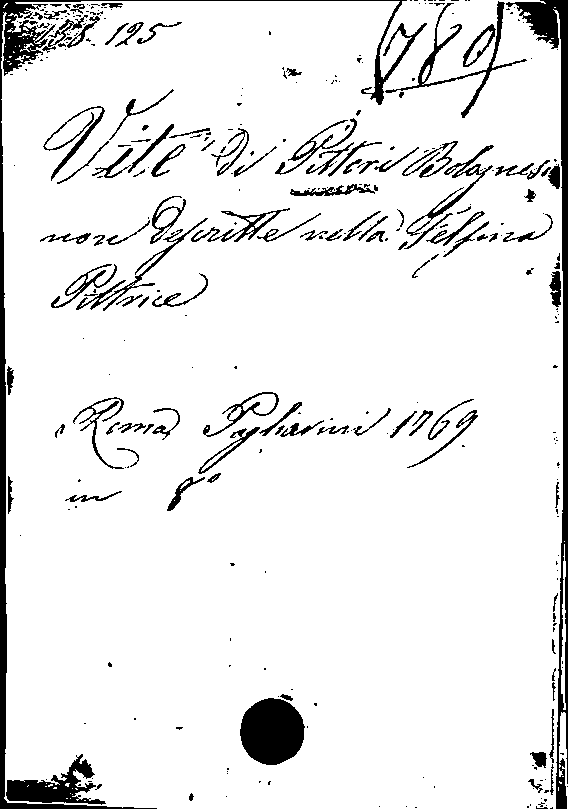 125 (780)
Vite di Pittori Bolognesi
non descritte nella Felsina
Pittrice
Roma Pagliarini 1769
in 8º